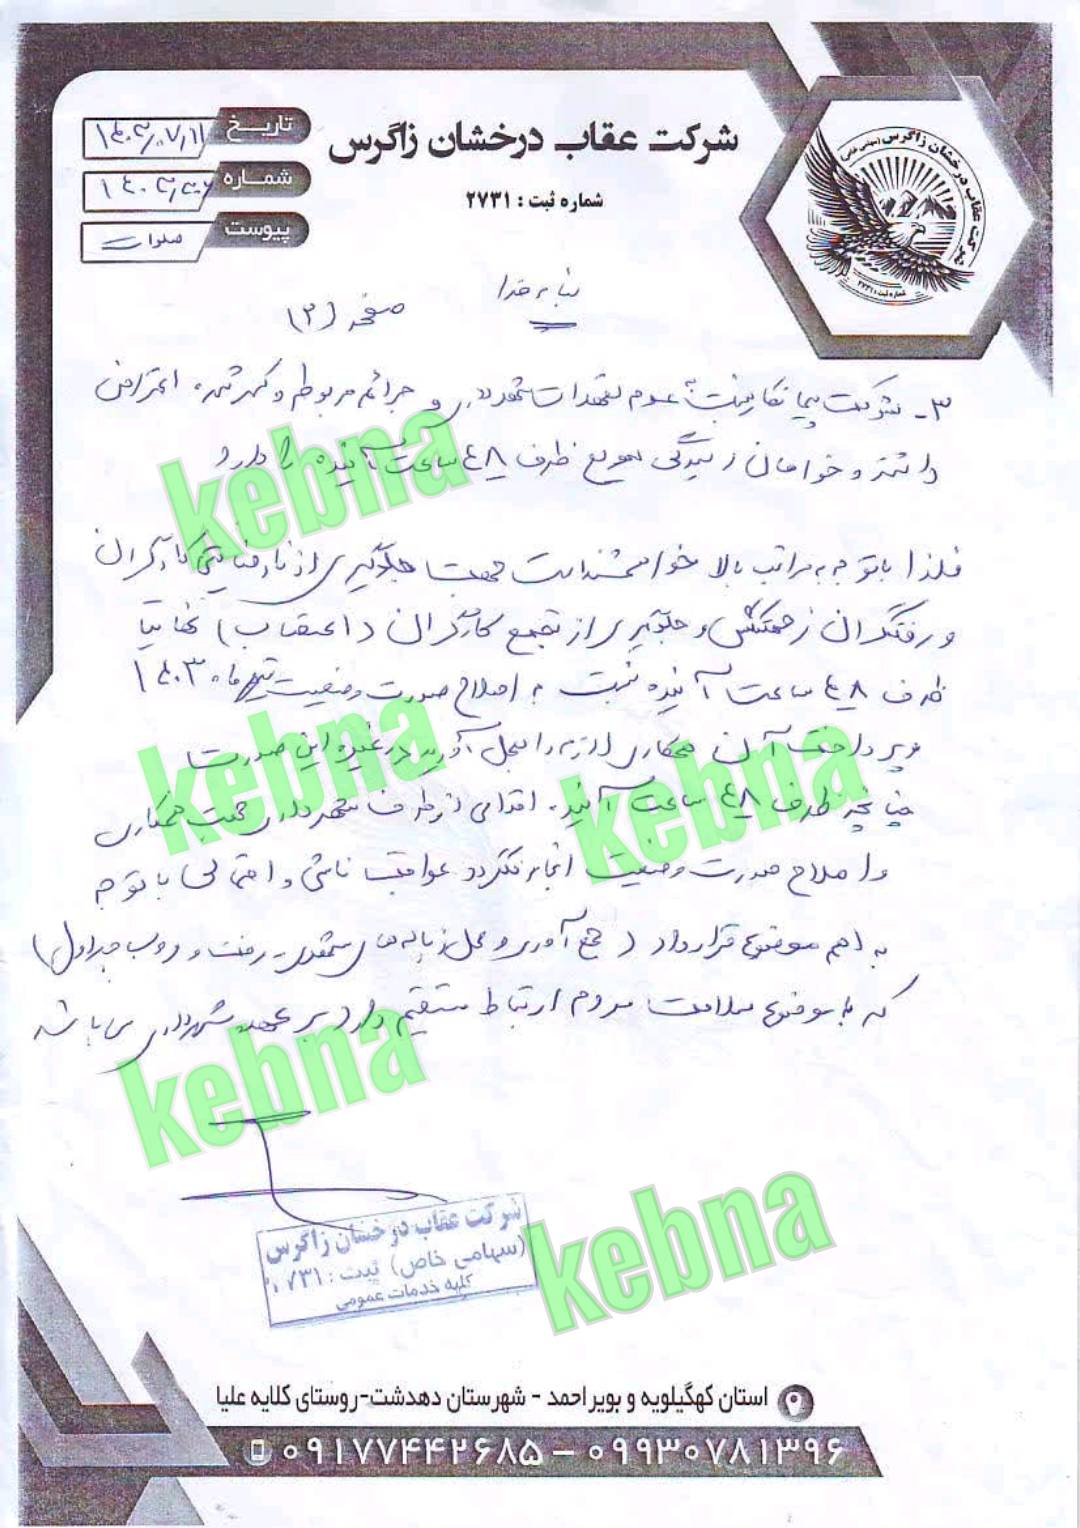 شرکت عقاب درخشان زاگرس
شماره ثبت : ۲۷۳۱
تاریخ ۱۴۰۳/۰۷/۱۱
شماره
پیوست
شرکت عقاب درخشان زاگرس (سهامی خاص)
شماره ثبت: ۲۷۳۱
بنام خدا
صفحه (۲)
۳- شرکت پیمانکار نسبت به عدم تعهدات شهرداری و جرائم مربوطه و کسر شده اعتراض
داشته و خواهان رسیدگی سریع ظرف ۴۸ ساعت آینده را دارد
فلذا با توجه به مراتب بالا خواهشمند است جهت جلوگیری از نارضایتی کارگران
و رفتگران زحمتکش و جلوگیری از تجمع کارگران (اعتصاب) نهایتا
ظرف ۴۸ ساعت آینده نسبت به اصلاح صورت وضعیت تیر ماه ۱۴۰۳
و پرداخت آن همکاری لازم را بعمل آورید در غیر این صورت
چنانچه ظرف ۴۸ ساعت آینده اقدامی از طرف شهرداری جهت همکاری
و اصلاح صورت وضعیت انجام نگردد عواقب ناشی و احتمالی با توجه
به اهم موضوع قرارداد (جمع آوری و حمل زباله های شهری - رفت و روب جداول)
که با موضوع سلامت مردم ارتباط مستقیم دارد بر عهده شهرداری می باشد
شرکت عقاب درخشان زاگرس
(سهامی خاص) ثبت : ۲۷۳۱
کلیه خدمات عمومی
استان کهگیلویه و بویراحمد - شهرستان دهدشت-روستای کلایه علیا
۰۹۱۷۷۴۴۲۶۸۵ – ۰۹۹۳۰۷۸۱۳۹۶
kebna
kebna
kebna
kebna
kebna